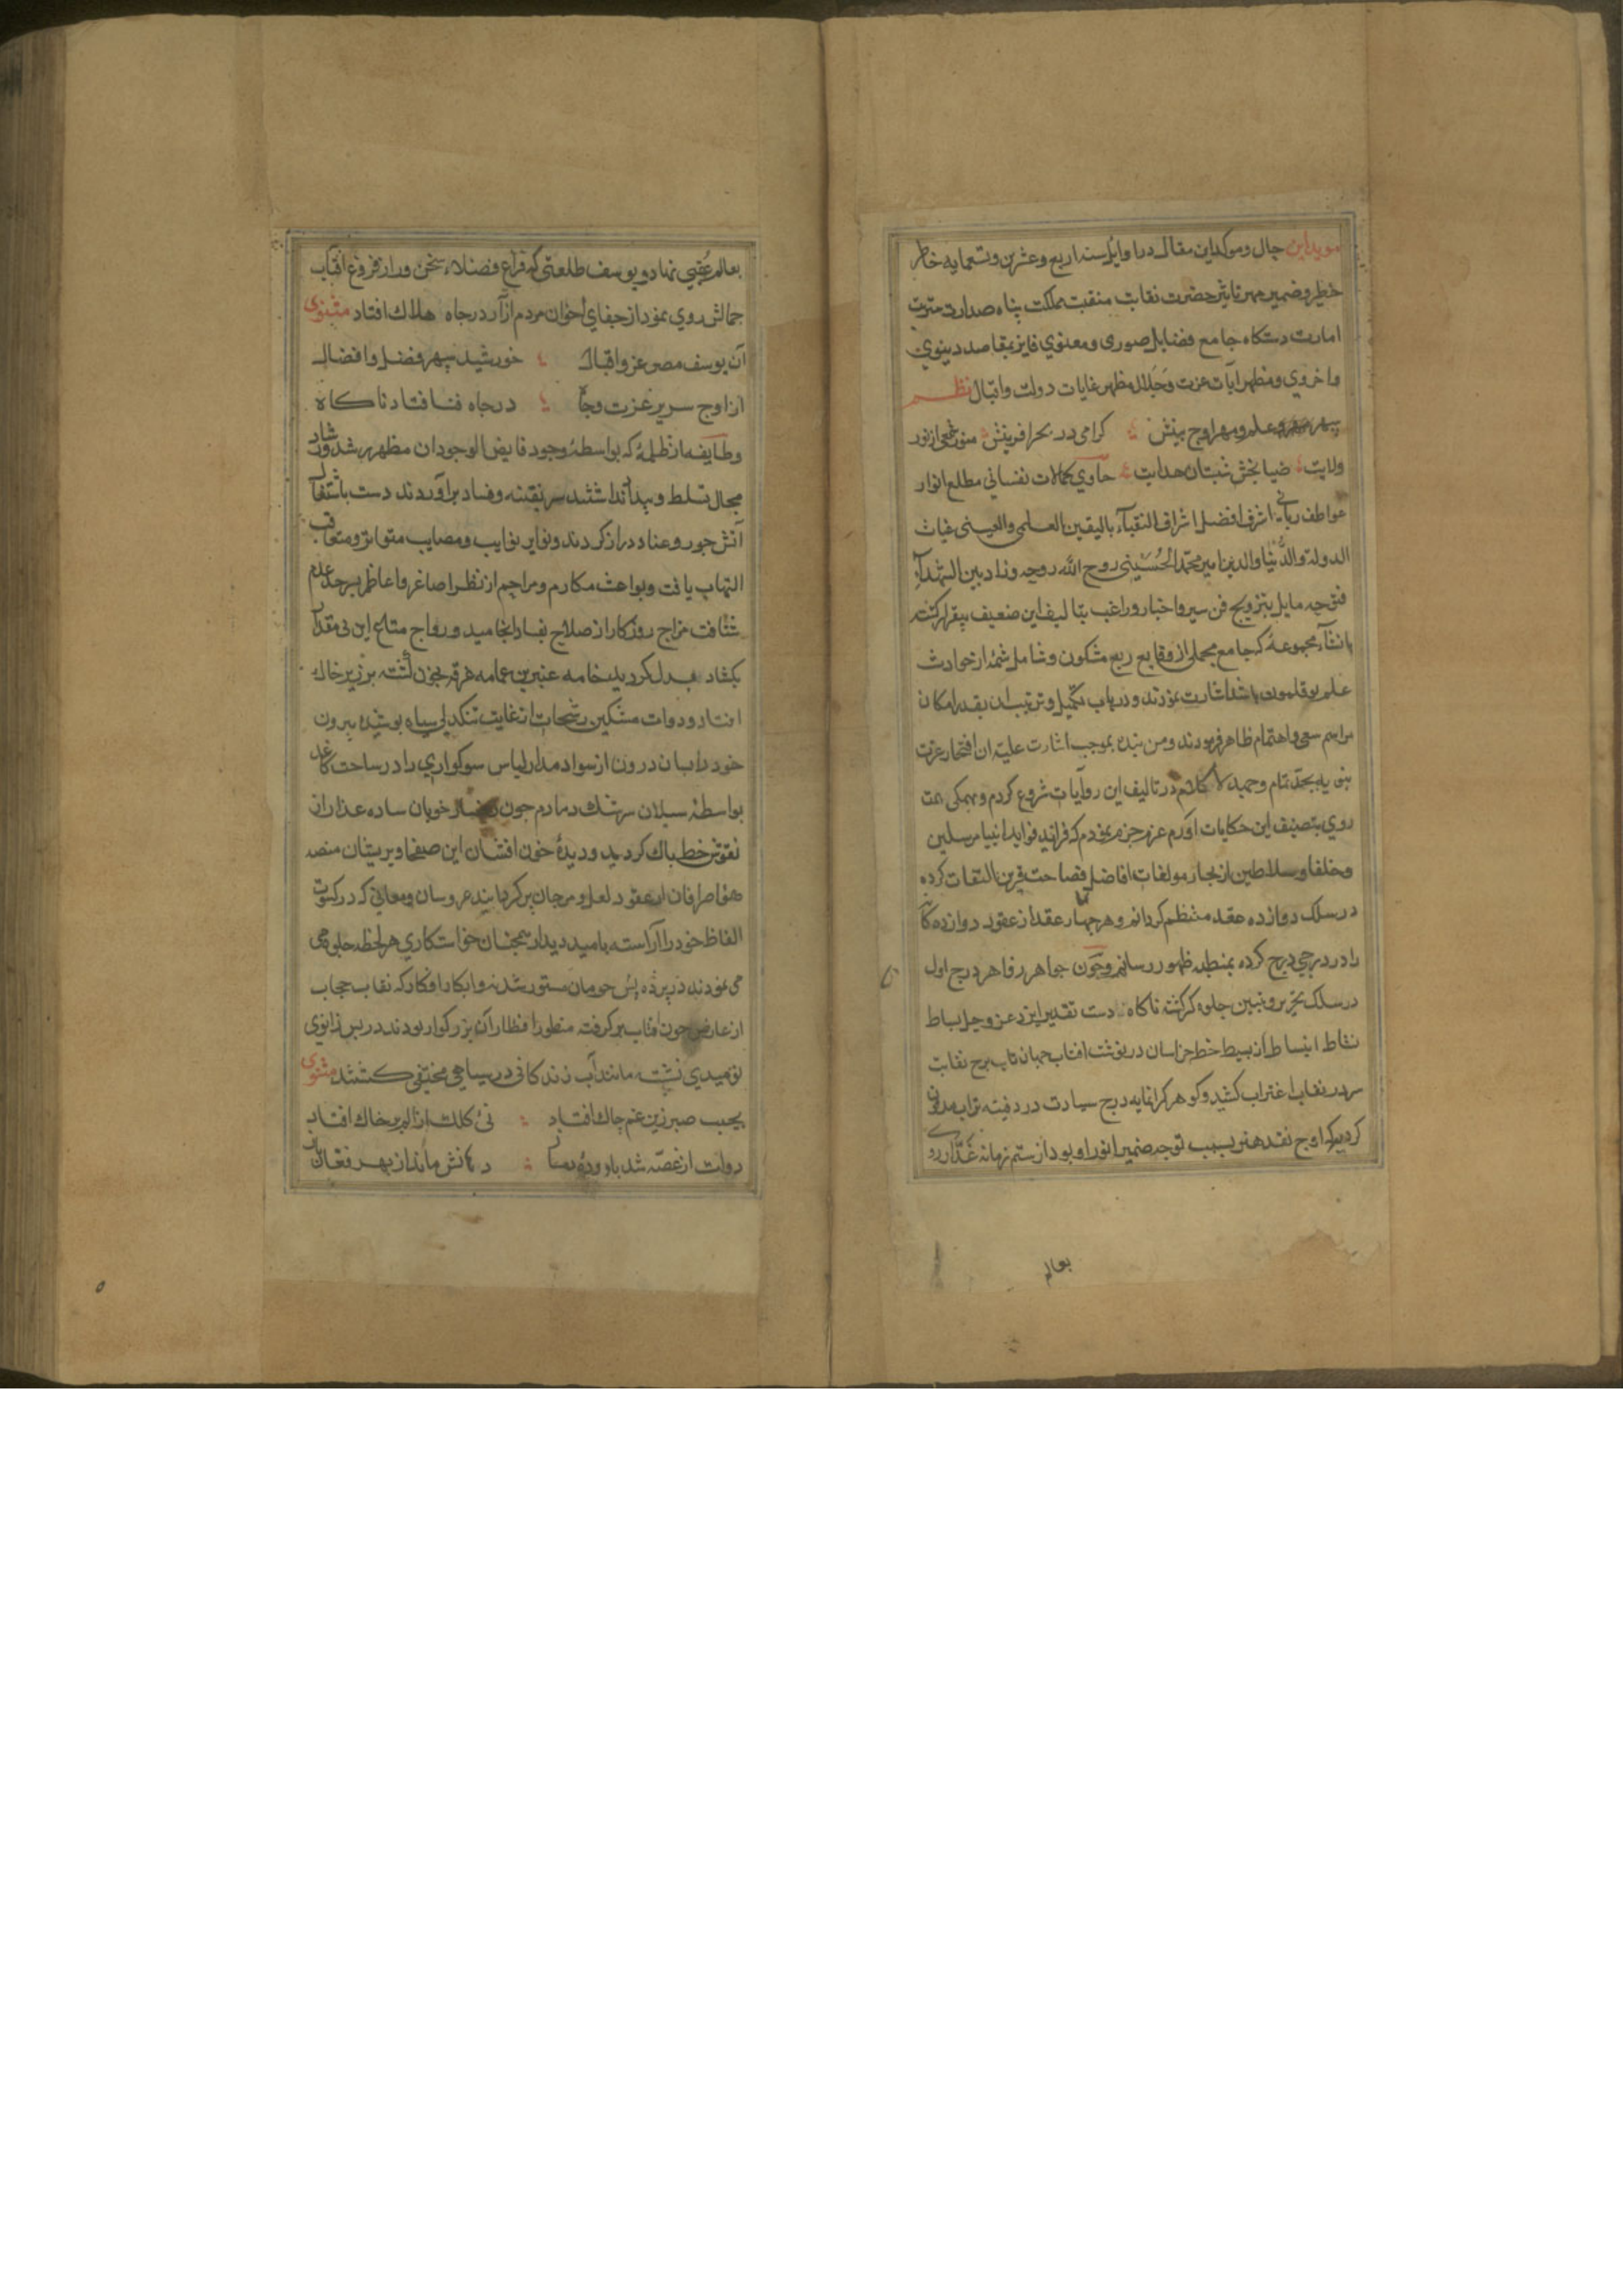 موید این حال و موکد این مقال در اوایل سنه اربع و عشرین و تسعمایه خاطر
خطیر و ضمیر مهر تاثیر حضرت نقابت منقبت مملکت پناه صدارت منزلت
امارت دستکاه جامع فضایل صوری و معنوی فایز بمقاصد دینوی
و اخروی و مظهر آیات عزت و جلال مظهر غایات دولت و اقبال نظم
سپهر علم و مهر اوج بینش کرامی در بحر آفرینش منور شمعی از نور
ولایت ضیا بخش شبستان هدایت حاوی کمالات نفسانی مطلع انوار
عواطف ربانی اشرف افضل اشراف النقباء بالیقین العلمی والعینی غیاث
الدولة والدنیا والدین امیر محمد الحسینی روح الله روحه وزاد بین الشهدآء
فتوحه مایل بترویج فن سیر و اخبار و راغب بتالیف این ضعیف بیقرار کشته
بانشآء مجموعهٔ که جامع مجملی از وقایع ربع مسکون و شامل شمهٔ از حوادث
عالم بوقلمون باشد اشارت نمودند و در باب تکمیل و ترتیب آن بقدر امکان
مراسم سعی و اهتمام ظاهر فرمودند و من بنده بموجب اشارت علیه آن افتخار عترت
نبویه بجد تمام و جهد لا کلام در تالیف این روایات شروع کردم و بهمکی همت
روی بتصنیف این حکایات آورم عزم جزم نمودم که فراید فواید انبیا مرسلین
و خلفا و سلاطین از بحار مولفات افاضل فصاحت قرین التقات کرده
در سلک دوازده عقد منتظم کردانم و هر چهار عقد از عقود دوازده کانه
را در درجی درج کرده بمنصه ظهور رسانم و چون جواهر زواهر درج اول
در سلک تحریر و تبیین جلوه کر کشته ناکاه دست تقدیر ایزد عز و جل بساط
نشاط انبساط از بسیط خطه خراسان در نوشت افتاب جهان تاب برج نقابت
سر در نقاب اغتراب کشید و کوهر کرانمایه درج سیادت در دفینه تراب مدفون
کردید که اوج نقد هنر بسبب توجه ضمیر انور او بود از ستم زمانه غدار روی
بعالم
بعالم عقبی نهاد و یوسف طلعتی که فراغ فضلاء سخن ور از فروغ افتاب
جمالش روی نمود از جفای اخوان مردم آزار در چاه هلاک افتاد مثنوی
آن یوسف مصر عز و اقبال خورشید سپهر فضل و افضال
از اوج سریر عزت و جاه در چاه فنا فتاد ناکاه
و طایفه از ظلمهٔ که بواسطهٔ وجود فایض الوجود آن مظهر رشد و رشاد
مجال تسلط و بیداد نداشتند سر بفتنه و فساد برآوردند دست باشتعال
آتش جور و عناد دراز کردند و نوایر نوایب و مصایب متواتر و متعاقب
التهاب یافت و بواعث مکارم و مراحم از نظر اصاغر و اعاظم بسرحد عدم
شتافت مزاج روزکار از صلاح بفساد انجامید و رواج متاع این بی مقدار
بکساد بدل کردید خامه عنبرین عمامه فرق بخون آغشته بر زبر خاک
افتاد و دوات مشکین رشحات از غایت تنکدلی سیاه پوشیده بیرون
خود را بسان درون از سواد مداد لباس سوکواری داد ساحت کاغد
بواسطهٔ سیلان سرشک دمادم چون رخسار خوبان ساده عذار از
نقوش خط پاک کردید و دیدهٔ خون افشان این
صرافان از عقود لعل و مرجان پر کردانید عروسان و معانی که در کسوت
الفاظ خود را آراسته بامید دیدار همچنان خواستکاری هر لحظه جلوهی
می نمودند در پرده یأس حرمان مستور شدند و ابکار افکار که نقاب حجاب
از عارض چون آفتاب برکرفته منظور انظار آن بزرکوار بودند در پس زانوی
نومیدی نشسته مانند آب زندکانی در سیاهی مختفی کشتند مثنوی
بجیب صبر زین غم چاک افتاد نی کلک از الم بر خاک افتاد
دوات از غصه شد با دودهٔ دمساز دهانش ماند از بهر فغان باز